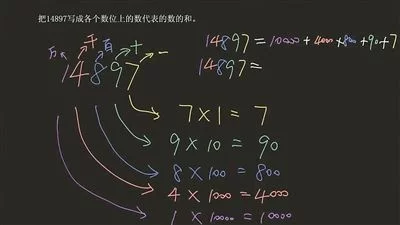 把14897写成各个数位上的数代表的数的和。
万 千 百 十 一
14897
14897=10000+4000+800+90+7
14897=
7×1=7
9×10=90
8×100=800
4×1000=4000
1×10000=10000